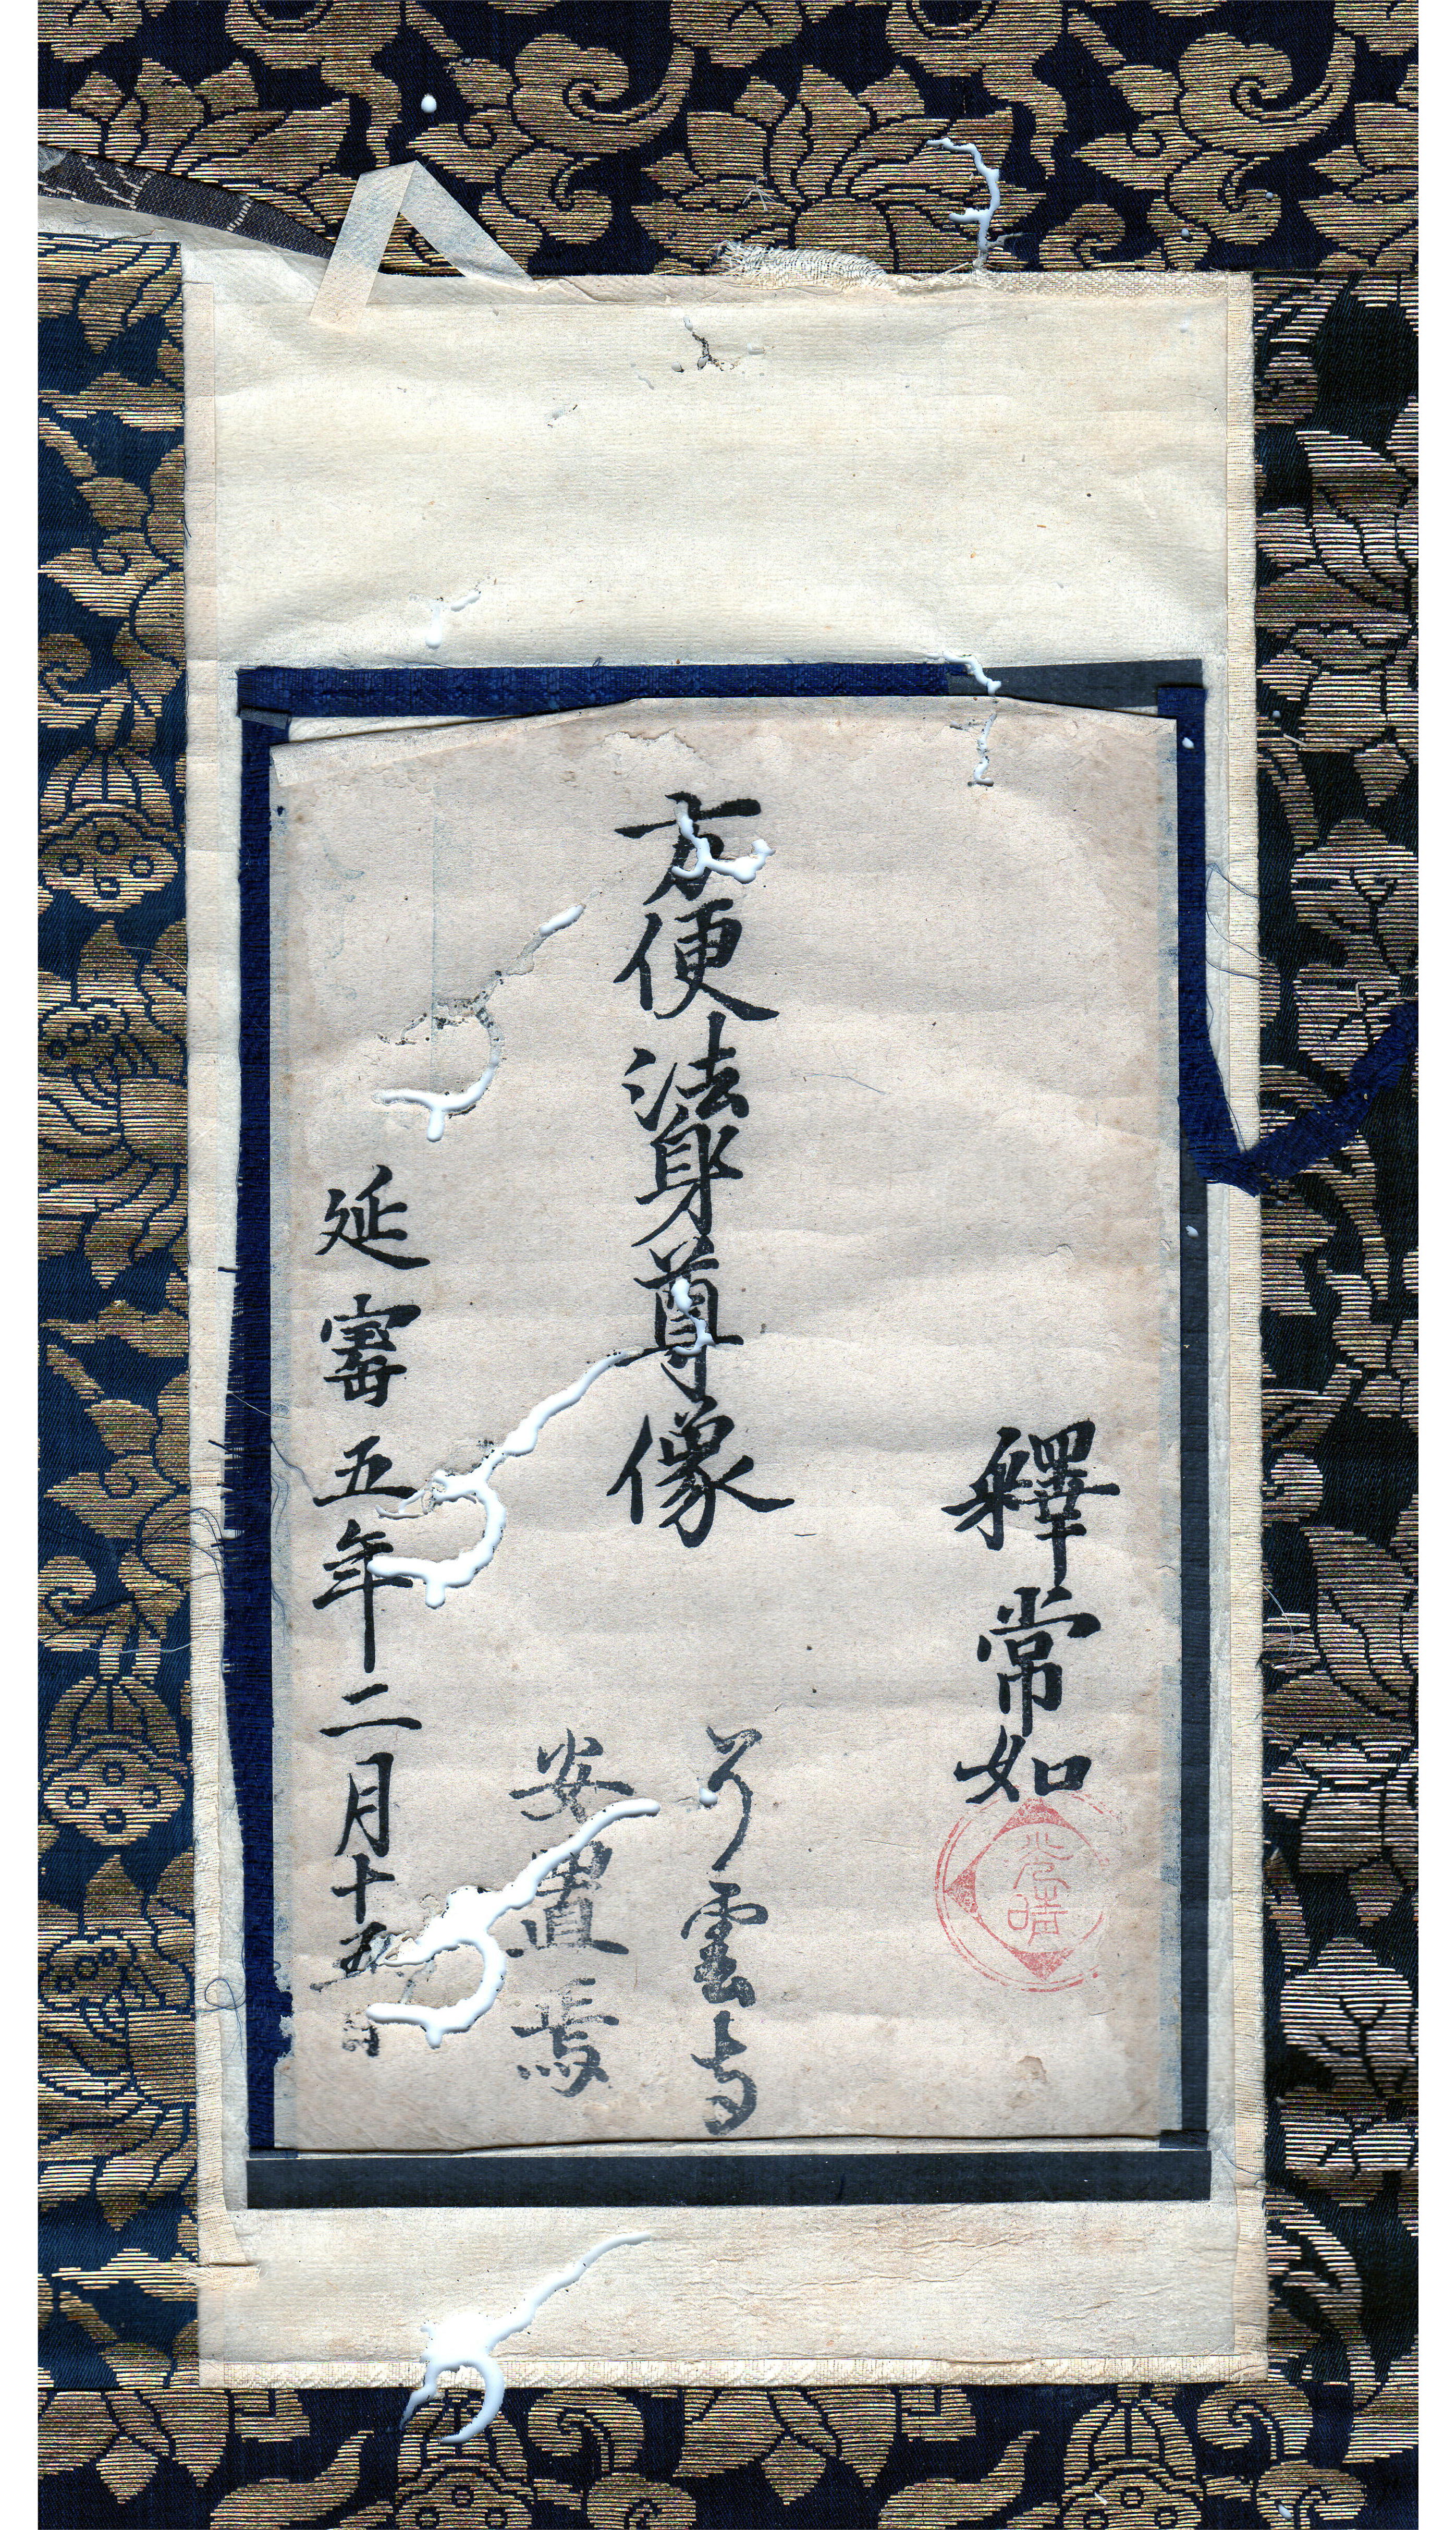 釋常如
光晴
方便法身尊像
雲寺
安置焉
延寳五年二月十五日